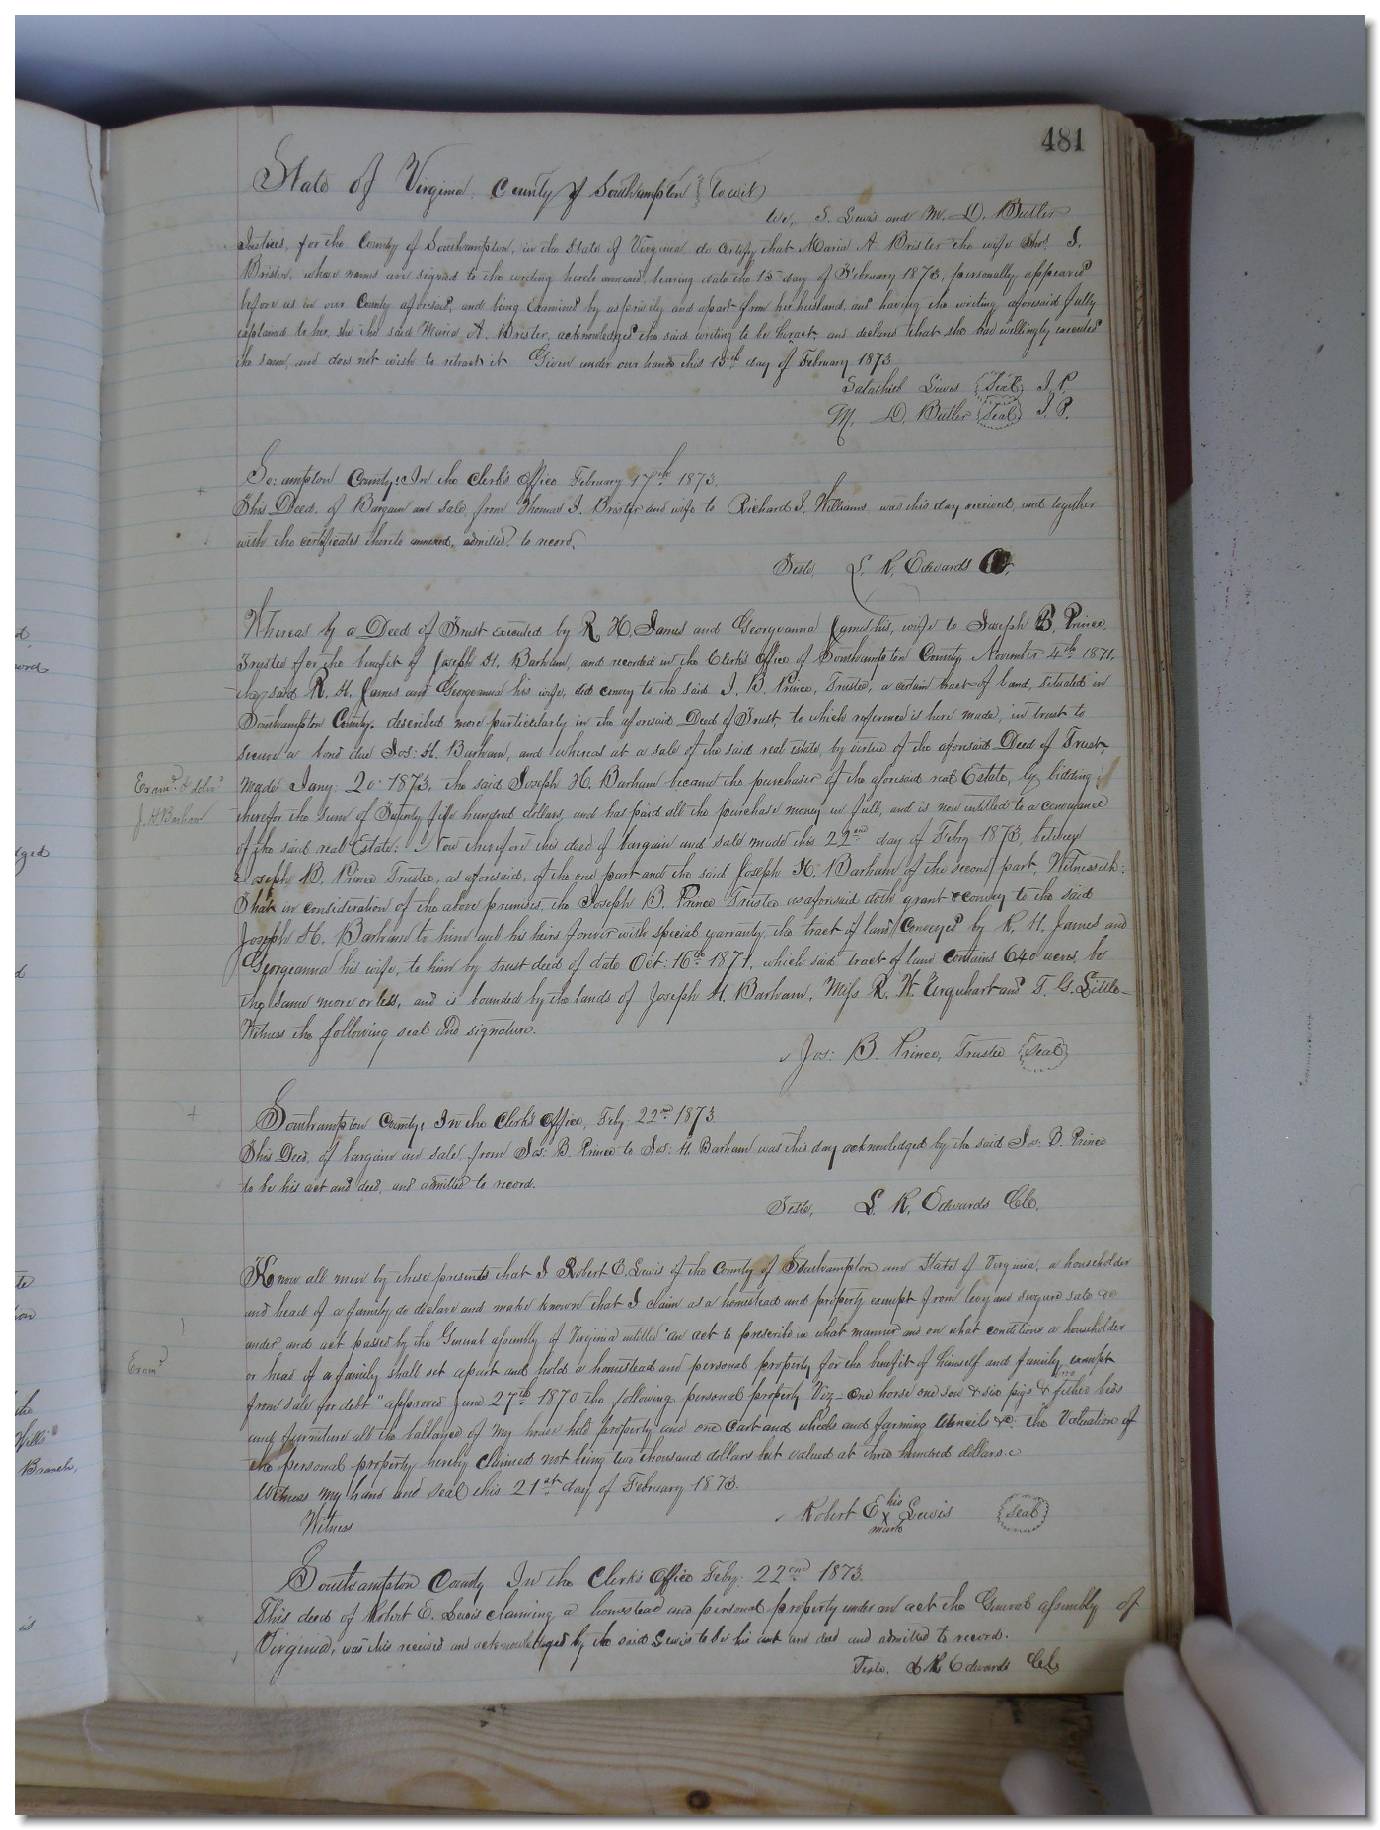 481
State of Virginia County of Southampton towit
We, S. Lewis and M. D. Butler
Justices, for the County of Southampton, in the State of Virginia do certify that Maria A Brister the wife Thos. J.
Brister, whose names are signed to the writing hereto annexed, bearing date the 15 day of February 1873, personally appeared
before us in our County aforesaid, and being Examined by us privily and apart from her husband, and having the writing aforesaid fully
explained to her, she the said Maria A. Brister, acknowledged the said writing to be her act, and declared that she had willingly executed
the same, and does not wish to retract it Given under our hands this 15th day of February 1873
Salathiel Lewis (Seal) J. P.
M. D. Butler (Seal) J. P.
So:ampton County: In the Clerk's Office February 17th 1873.
This Deed of Bargain and sale from Thomas J. Brister and wife to Richard J. Williams was this day received, and together
with the certificates thereto annexed, admitted to record.
Teste, L. R. Edwards
Whereas by a Deed of Trust executed by R. H. James and Georgeanna James his, wife to Joseph B. Prince,
Trustee for the benefit of Joseph H. Barham, and recorded in the Clerk's Office of Southampton County November 4th 1871,
the said R. H. James and Georgeanna his wife, did convey to the said J. B. Prince, Trustee, a certain tract of land, situated in
Southampton County, described more particularly in the aforesaid Deed of Trust, to which reference is here made, in trust to
secure a bond due Jos: H. Barham, and whereas at a sale of the said real estate, by virtue of the aforesaid Deed of Trust,
Examd. & delivd
J. H Barham
made Jany: 20 1873, the said Joseph H. Barham became the purchaser of the aforesaid real Estate, by bidding
therefor the Sum of Twenty five hundred dollars, and has paid all the purchase money in full, and is now entitled to a conveyance
of the said real Estate: Now therefore this deed of bargain and sale made this 22nd day of Feby 1873, between
Joseph B. Prince Trustee, as aforesaid, of the one part and the said Joseph H. Barham of the second part, Witnesseth:
That in consideration of the above premises, the Joseph B. Prince Trustee as aforesaid doth grant & convey to the said
Joseph H. Barham to him and his heirs forever with special warranty, the tract of land Conveyed by R. H. James and
Georgeanna his wife, to him by trust deed of date Oct: 16th 1871, which said tract of land contains 640 acres, be
the same more or less, and is bounded by the lands of Joseph H. Barham, Miss R. W. Urquhart and T. G. Little
Witness the following seal and signature.
Jos: B. Prince, Trustee (seal)
Southampton County, In the Clerk's Office, Feby: 22nd 1873
This Deed, of bargain and sale from Jos: B. Prince to Jos: H. Barham was this day acknowledged by the said Jos: B. Prince
to be his act and deed, and admitted to record.
Teste, L. R. Edwards Clk.
Know all men by these presents that I Robert E. Lewis of the County of Southampton and State of Virginia, a householder
and head of a family do declare and make known that I claim as a homestead and property exempt from levy and seizure sale &c
under and act passed by the General assembly of Virginia entitled "an act to prescribe in what manner and on what conditions a householder
Examd
or head of a family shall set apart and hold a homestead and personal property for the benefit of himself and family exempt
from sale for debt" approved June 27th 1870 the following personal property Viz- one horse one sow & six pigs & two feather beds
and furniture all the ballance of my house hold property and one Cart and wheels and farming utensils &c. the Valuation of
the personal property hereby claimed not being two thousand dollars but valued at three hundred dollars.
Witness my hand and seal this 21st day of February 1873.
Witness
Robert E his X mark Lewis (seal)
Southampton County In the Clerk's Office Feby: 22nd 1873.
This deed of Robert E. Lewis claiming a homestead and personal property under an act the General assembly of
Virginia, was this received and acknowledged by the said Lewis to be his act and deed and admitted to record.
Teste. L R Edwards Clk